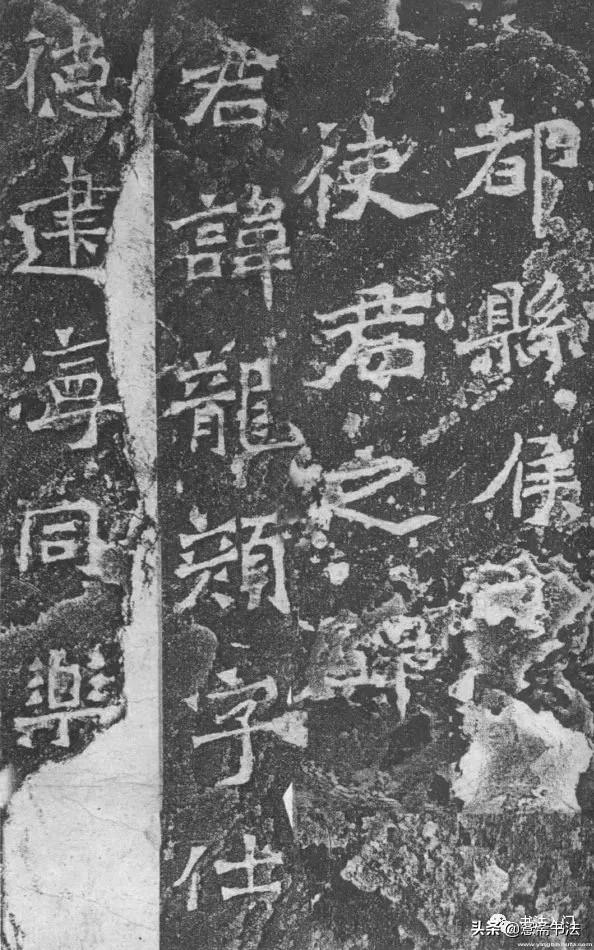 都縣侯
使君之碑
君諱龍顏字仕
德建寧同樂
书法入门
头条 书法
www.yingbishufa.com